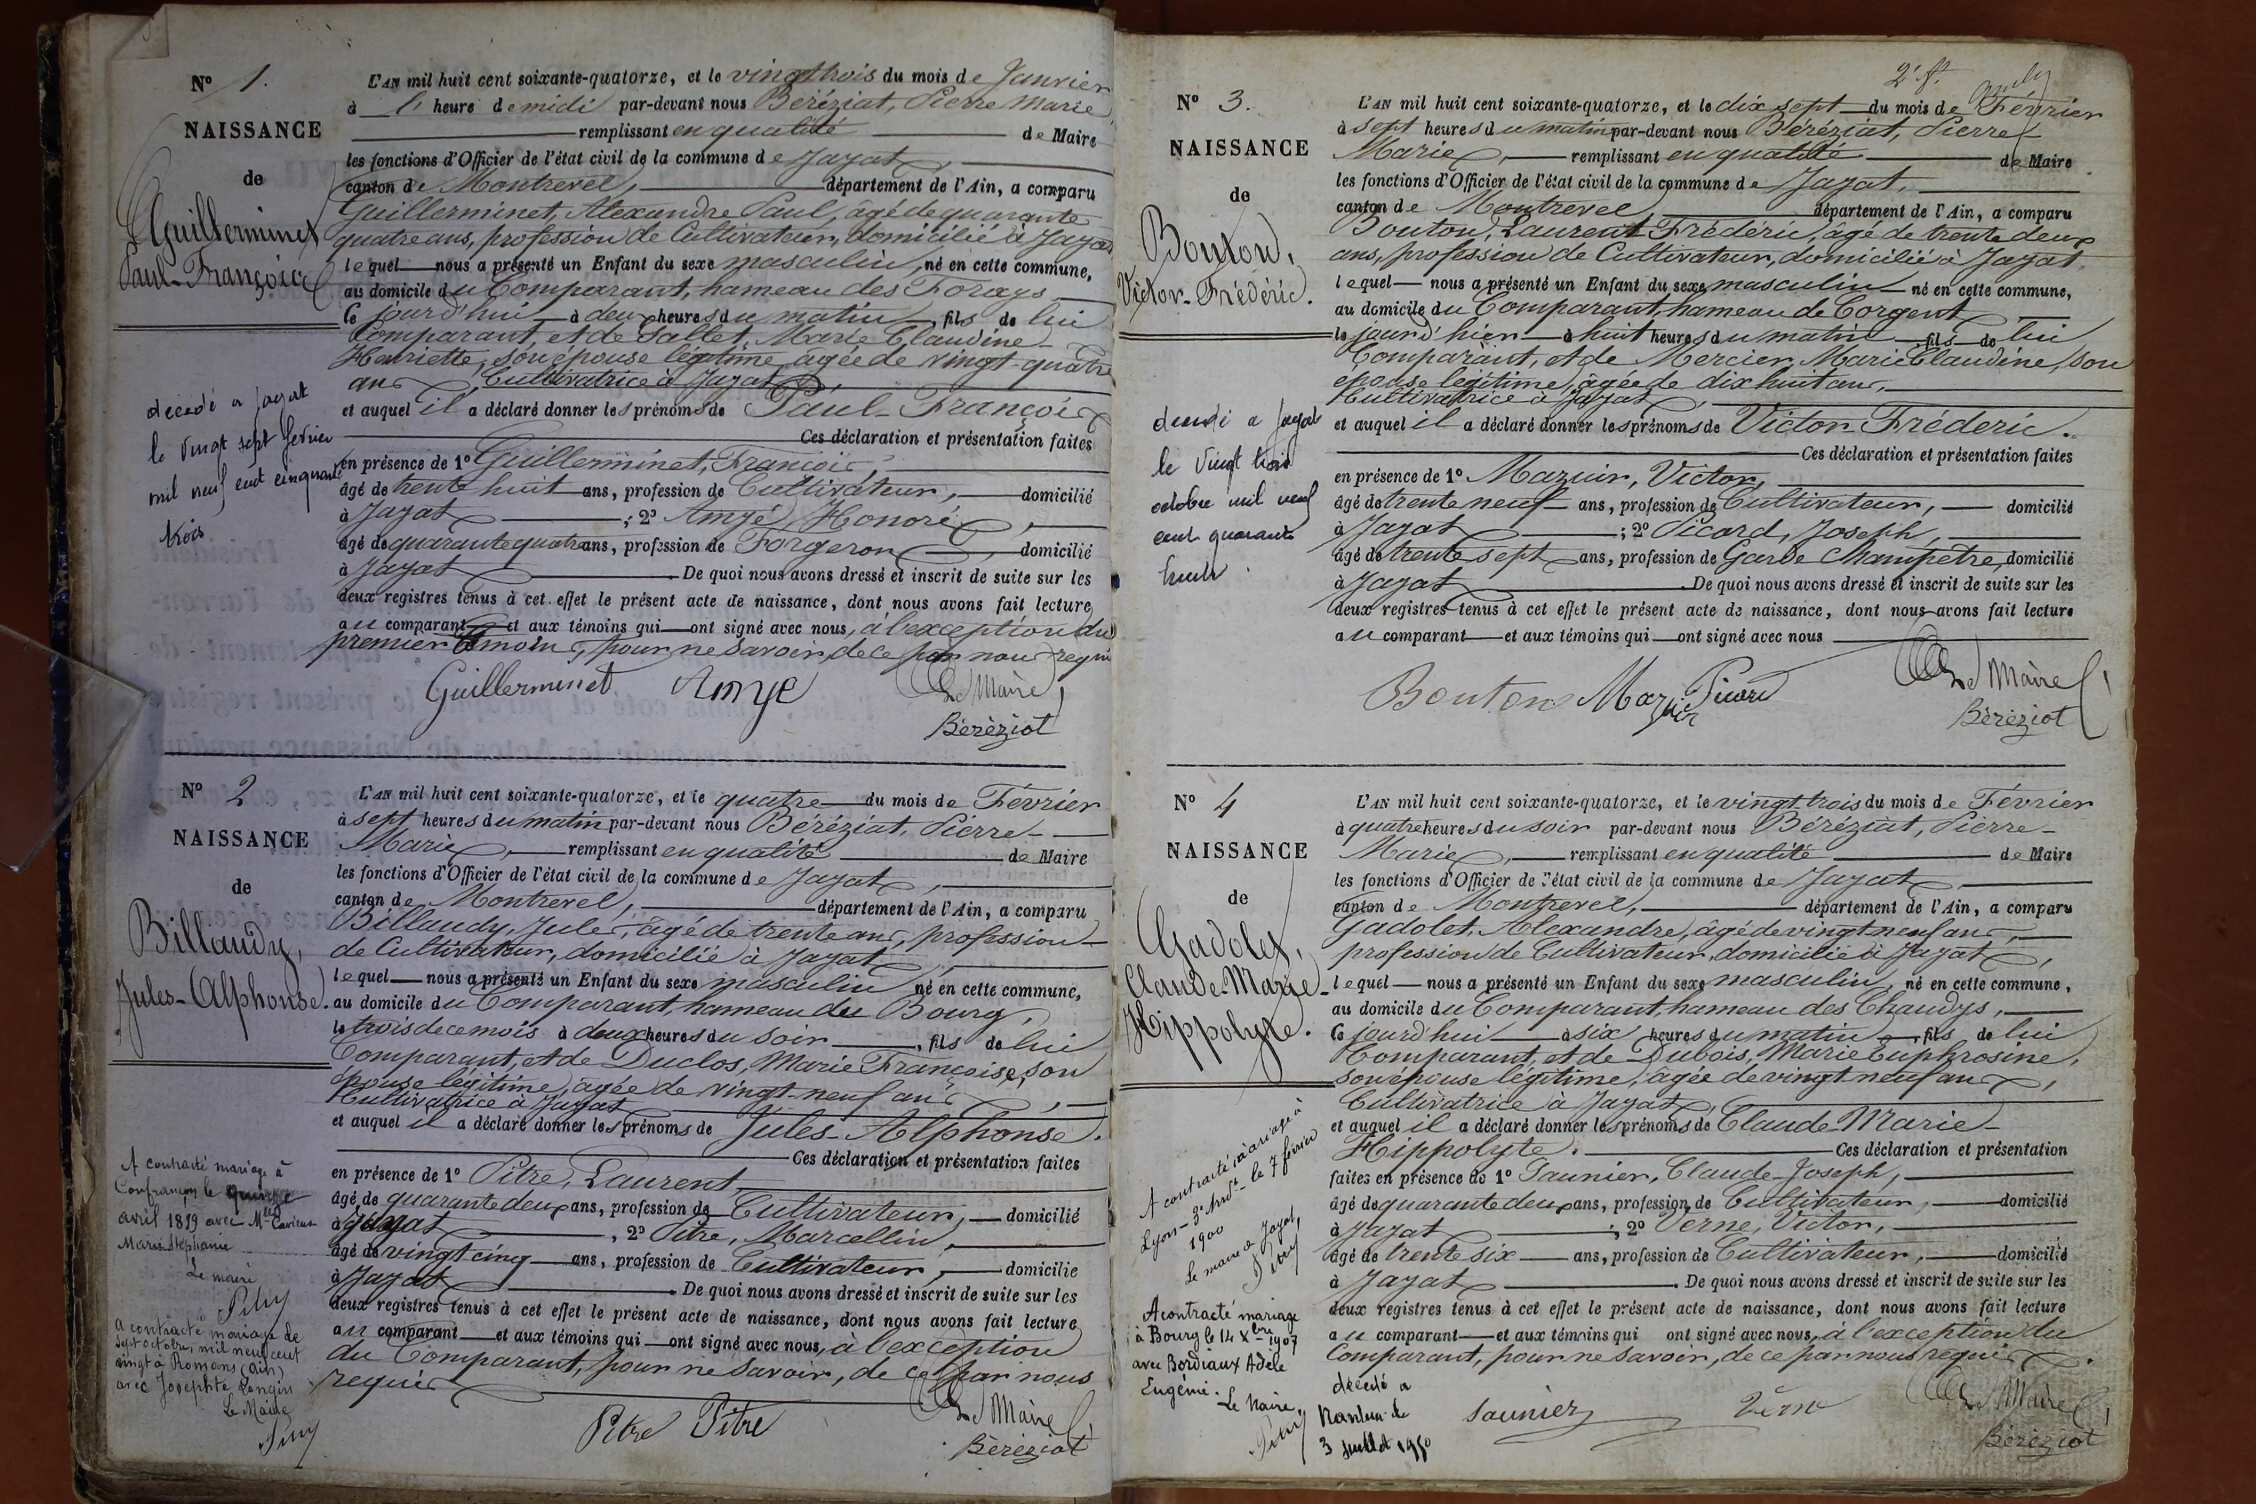 N° 1.
NAISSANCE
de
Guillerminet
Paul-François
décédé a Jayat
le vingt sept fevrier
mil neuf cent cinquante
trois
L'AN mil huit cent soixante-quatorze, et le vingt trois du mois de Janvier
à heure de midi par-devant nous Béréziat, Pierre Marie
remplissant en qualité de Maire
les fonctions d'Officier de l'état civil de la commune de Jayat,
canton de Montrevel, département de l'Ain, a comparu
Guillerminet, Alexandre Paul, âgé de quarante
quatre ans, profession de Cultivateur, domicilié à Jayat
lequel nous a présenté un Enfant du sexe masculin, né en cette commune,
au domicile du Comparant, hameau des Forays
ce jourd'hui à deux heures du matin, fils de lui
Comparant, et de Gallet, Marie Claudine
Henriette, son épouse légitime, agée de vingt-quatre
ans, Cultivatrice à Jayat,
et auquel il a déclaré donner les prénoms de Paul-François
Ces déclaration et présentation faites
en présence de 1° Guillerminet, François,
âgé de trente huit ans, profession de Cultivateur, domicilié
à Jayat ; 2° Amyé, Honoré,
âgé de quarante quatre ans, profession de Forgeron, domicilié
à Jayat. De quoi nous avons dressé et inscrit de suite sur les
deux registres tenus à cet effet le présent acte de naissance, dont nous avons fait lecture
au comparant et aux témoins qui ont signé avec nous, à l'exception du
premier témoin, pour ne savoir, de ce par nous requis
Guillerminet Amyé Le Maire
Béréziat
N° 2
NAISSANCE
de
Billaudy,
Jules-Alphonse.
A contracté mariage à
Confrançon le quinze
avril 1899 avec Mlle
Marie Stephanie
Le maire
Pitry
a contracté mariage le
sept octobre, mil neuf cent
vingt à Romans (Ain)
avec Josephte Longin
Le Maire
Pitry
L'AN mil huit cent soixante-quatorze, et le quatre du mois de Février
à sept heures du matin par-devant nous Béréziat, Pierre-
Marie, remplissant en qualité de Maire
les fonctions d'Officier de l'état civil de la commune de Jayat,
canton de Montrevel, département de l'Ain, a comparu
Billaudy, Jules, âgé de trente ans, profession
de Cultivateur, domicilié à Jayat,
lequel nous a présenté un Enfant du sexe masculin né en cette commune,
au domicile du Comparant, hameau du Bourg,
le trois de ce mois à deux heures du soir, fils de lui
Comparant, et de Duclos, Marie Françoise, son
épouse légitime, âgée de vingt-neuf ans,
Cultivatrice à Jayat
et auquel il a déclaré donner les prénoms de Jules-Alphonse.
Ces déclaration et présentation faites
en présence de 1° Pitre, Laurent,
âgé de quarante deux ans, profession de Cultivateur, domicilié
à Jayat, 2° Pitre, Marcellin,
âgé de vingt cinq ans, profession de Cultivateur, domicilié
à Jayat. De quoi nous avons dressé et inscrit de suite sur les
deux registres tenus à cet effet le présent acte de naissance, dont nous avons fait lecture
au comparant et aux témoins qui ont signé avec nous, à l'exception
du Comparant, pour ne savoir, de ce par nous
requis
Pitre Pitre Le Maire
Béréziat
2e f.
N° 3.
NAISSANCE
de
Bouton,
Victor-Frédéric.
décédé a Jayat
le vingt trois
octobre mil neuf
cent quarante
L'AN mil huit cent soixante-quatorze, et le dix sept du mois de Février
à sept heures du matin par-devant nous Béréziat, Pierre
Marie, remplissant en qualité de Maire
les fonctions d'Officier de l'état civil de la commune de Jayat,
canton de Montrevel département de l'Ain, a comparu
Bouton, Laurent Frédéric, âgé de trente deux
ans, profession de Cultivateur, domicilié à Jayat,
lequel nous a présenté un Enfant du sexe masculin né en cette commune,
au domicile du Comparant, hameau de Corgent
le jour d'hier à huit heures du matin, fils de lui
Comparant, et de Mercier, Marie Claudine, son
épouse légitime, âgée de dix huit ans,
Cultivatrice à Jayat,
et auquel il a déclaré donner les prénoms de Victor Fréderic.
Ces déclaration et présentation faites
en présence de 1° Mazuir, Victor,
âgé de trente neuf ans, profession de Cultivateur, domicilié
à Jayat ; 2° Picard, Joseph,
âgé de trente sept ans, profession de Garde Champêtre, domicilié
à Jayat. De quoi nous avons dressé et inscrit de suite sur les
deux registres tenus à cet effet le présent acte de naissance, dont nous avons fait lecture
au comparant et aux témoins qui ont signé avec nous
Bouton Mazuir Picard Le Maire
Béréziat
N° 4
NAISSANCE
de
Gadolet,
Claude-Marie-
Hippolyte.
A contracté mariage à
Lyon - 3e Arrdt le 7 février
1900
Le maire de Jayat,
Pitry
A contracté mariage
à Bourg le 14 Xbre 1907
avec Bordiaux Adèle
Eugénie. Le Maire,
Pitry
décédé a
3 juillet 1950
L'AN mil huit cent soixante-quatorze, et le vingt trois du mois de Février
à quatre heures du soir par-devant nous Béréziat, Pierre-
Marie, remplissant en qualité de Maire
les fonctions d'Officier de l'état civil de la commune de Jayat
canton de Montrevel, département de l'Ain, a comparu
Gadolet, Alexandre, âgé de vingt neuf ans,
profession de Cultivateur, domicilié à Jayat,
lequel nous a présenté un Enfant du sexe masculin, né en cette commune,
au domicile du Comparant, hameau des Chaudys,
ce jourd'hui à six heures du matin, fils de lui
Comparant, et de Dubois, Marie Euphrosine,
son épouse légitime, âgée de vingt neuf ans,
Cultivatrice à Jayat,
et auquel il a déclaré donner les prénoms de Claude Marie-
Hippolyte. Ces déclaration et présentation
faites en présence de 1° Saunier, Claude Joseph,
âgé de quarante deux ans, profession de Cultivateur, domicilié
à Jayat ; 2° Verne, Victor,
âgé de trente six ans, profession de Cultivateur, domicilié
à Jayat. De quoi nous avons dressé et inscrit de suite sur les
deux registres tenus à cet effet le présent acte de naissance, dont nous avons fait lecture
au comparant et aux témoins qui ont signé avec nous, à l'exception du
Comparant, pour ne savoir, de ce par nous requis.
Saunier Verne Le Maire
Béréziat